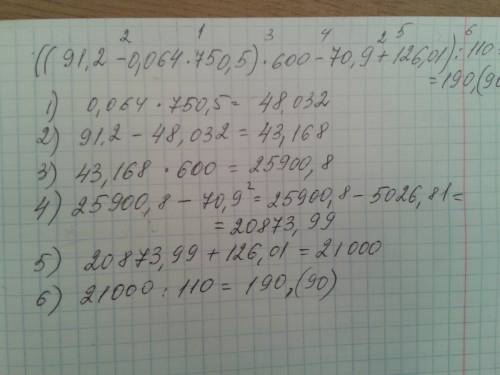 ((91,2 - 0,064 · 750,5) · 600 - 70,9² + 126,01) : 110 =
= 190,(90
1) 0,064 · 750,5 = 48,032
2) 91,2 - 48,032 = 43,168
3) 43,168 · 600 = 25900,8
4) 25900,8 - 70,9² = 25900,8 - 5026,81 =
= 20873,99
5) 20873,99 + 126,01 = 21000
6) 21000 : 110 = 190,(90)